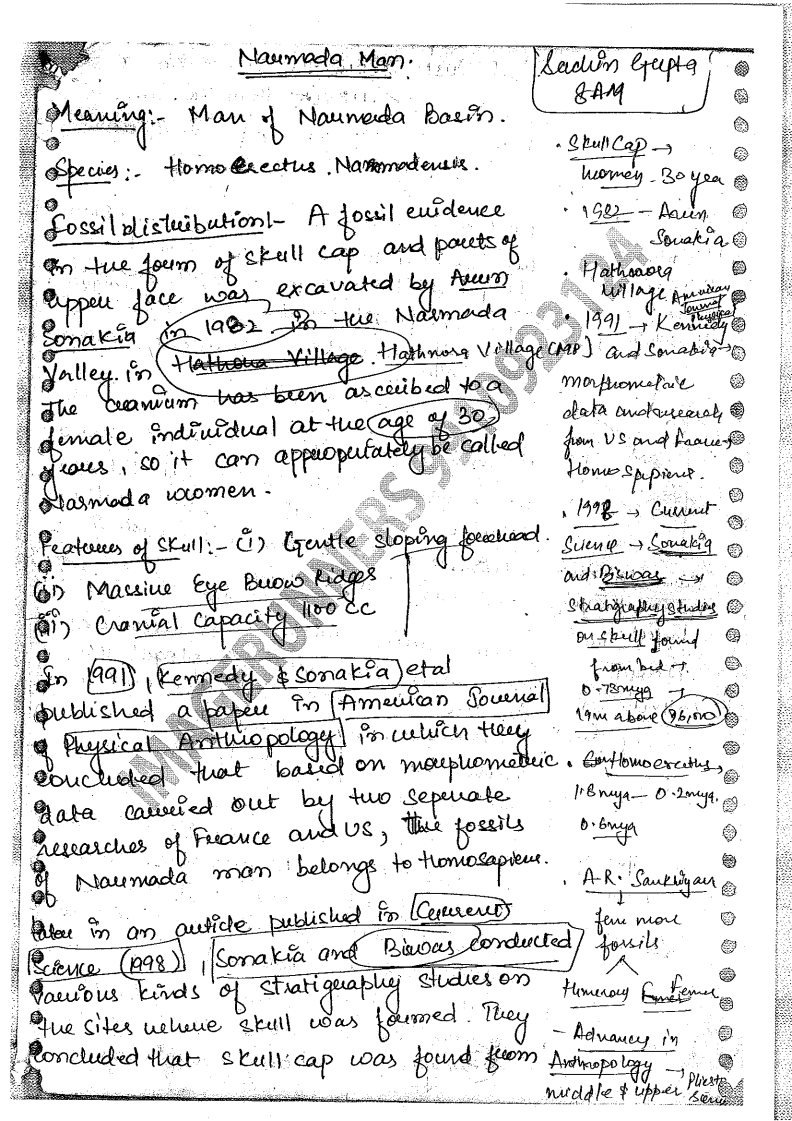 Narmada Man.
Sachin Gupta
8AM
Meaning:- Man of Narmada Basin.
Species:- Homo Erectus Narmadensis.
Fossil distribution:- A fossil evidence
in the form of skull cap and parts of
upper face was excavated by Arun
Sonakia in 1982 in the Narmada
Valley in Hathnora Village. Hathnora Village (MP)
The cranium has been ascribed to a
female individual at the age of 30
years, so it can appropriately be called
Narmada women.
Features of Skull:- (i) Gentle sloping forehead.
(ii) Massive Eye Brow Ridges
(iii) Cranial Capacity 1100 CC
In 1991, Kennedy & Sonakia etal
published a paper in American Journal
of Physical Anthropology in which they
concluded that based on morphometric
data carried out by two seperate
researches of France and US, the fossils
of Narmada man belongs to Homosapiens.
later in an article published in Current
Science (1998), Sonakia and Biswas conducted
various kinds of stratigraphy studies on
the sites where skull was formed. They
concluded that skull cap was found from
• Skull Cap →
women - 30 yea
• 1982 - Arun
Sonakia
• Hathnora
village
American
Journal
Physical
• 1991 → Kennedy
and Sonakia →
morphometric
data and research
from US and France →
Homo Sapiens.
• 1998 → Current
Science → Sonakia
and Biswas →
stratigraphy studies
on skull found
from bed →
0.73mya →
19m above 96,000
• Homoerectus →
1.8mya - 0.2mya.
0.6mya
• A.R. Sankhyan
↓
few more
fossils
Humerus Femur
- Advances in
Anthropology →
middle & upper
IMAGERUNNERS